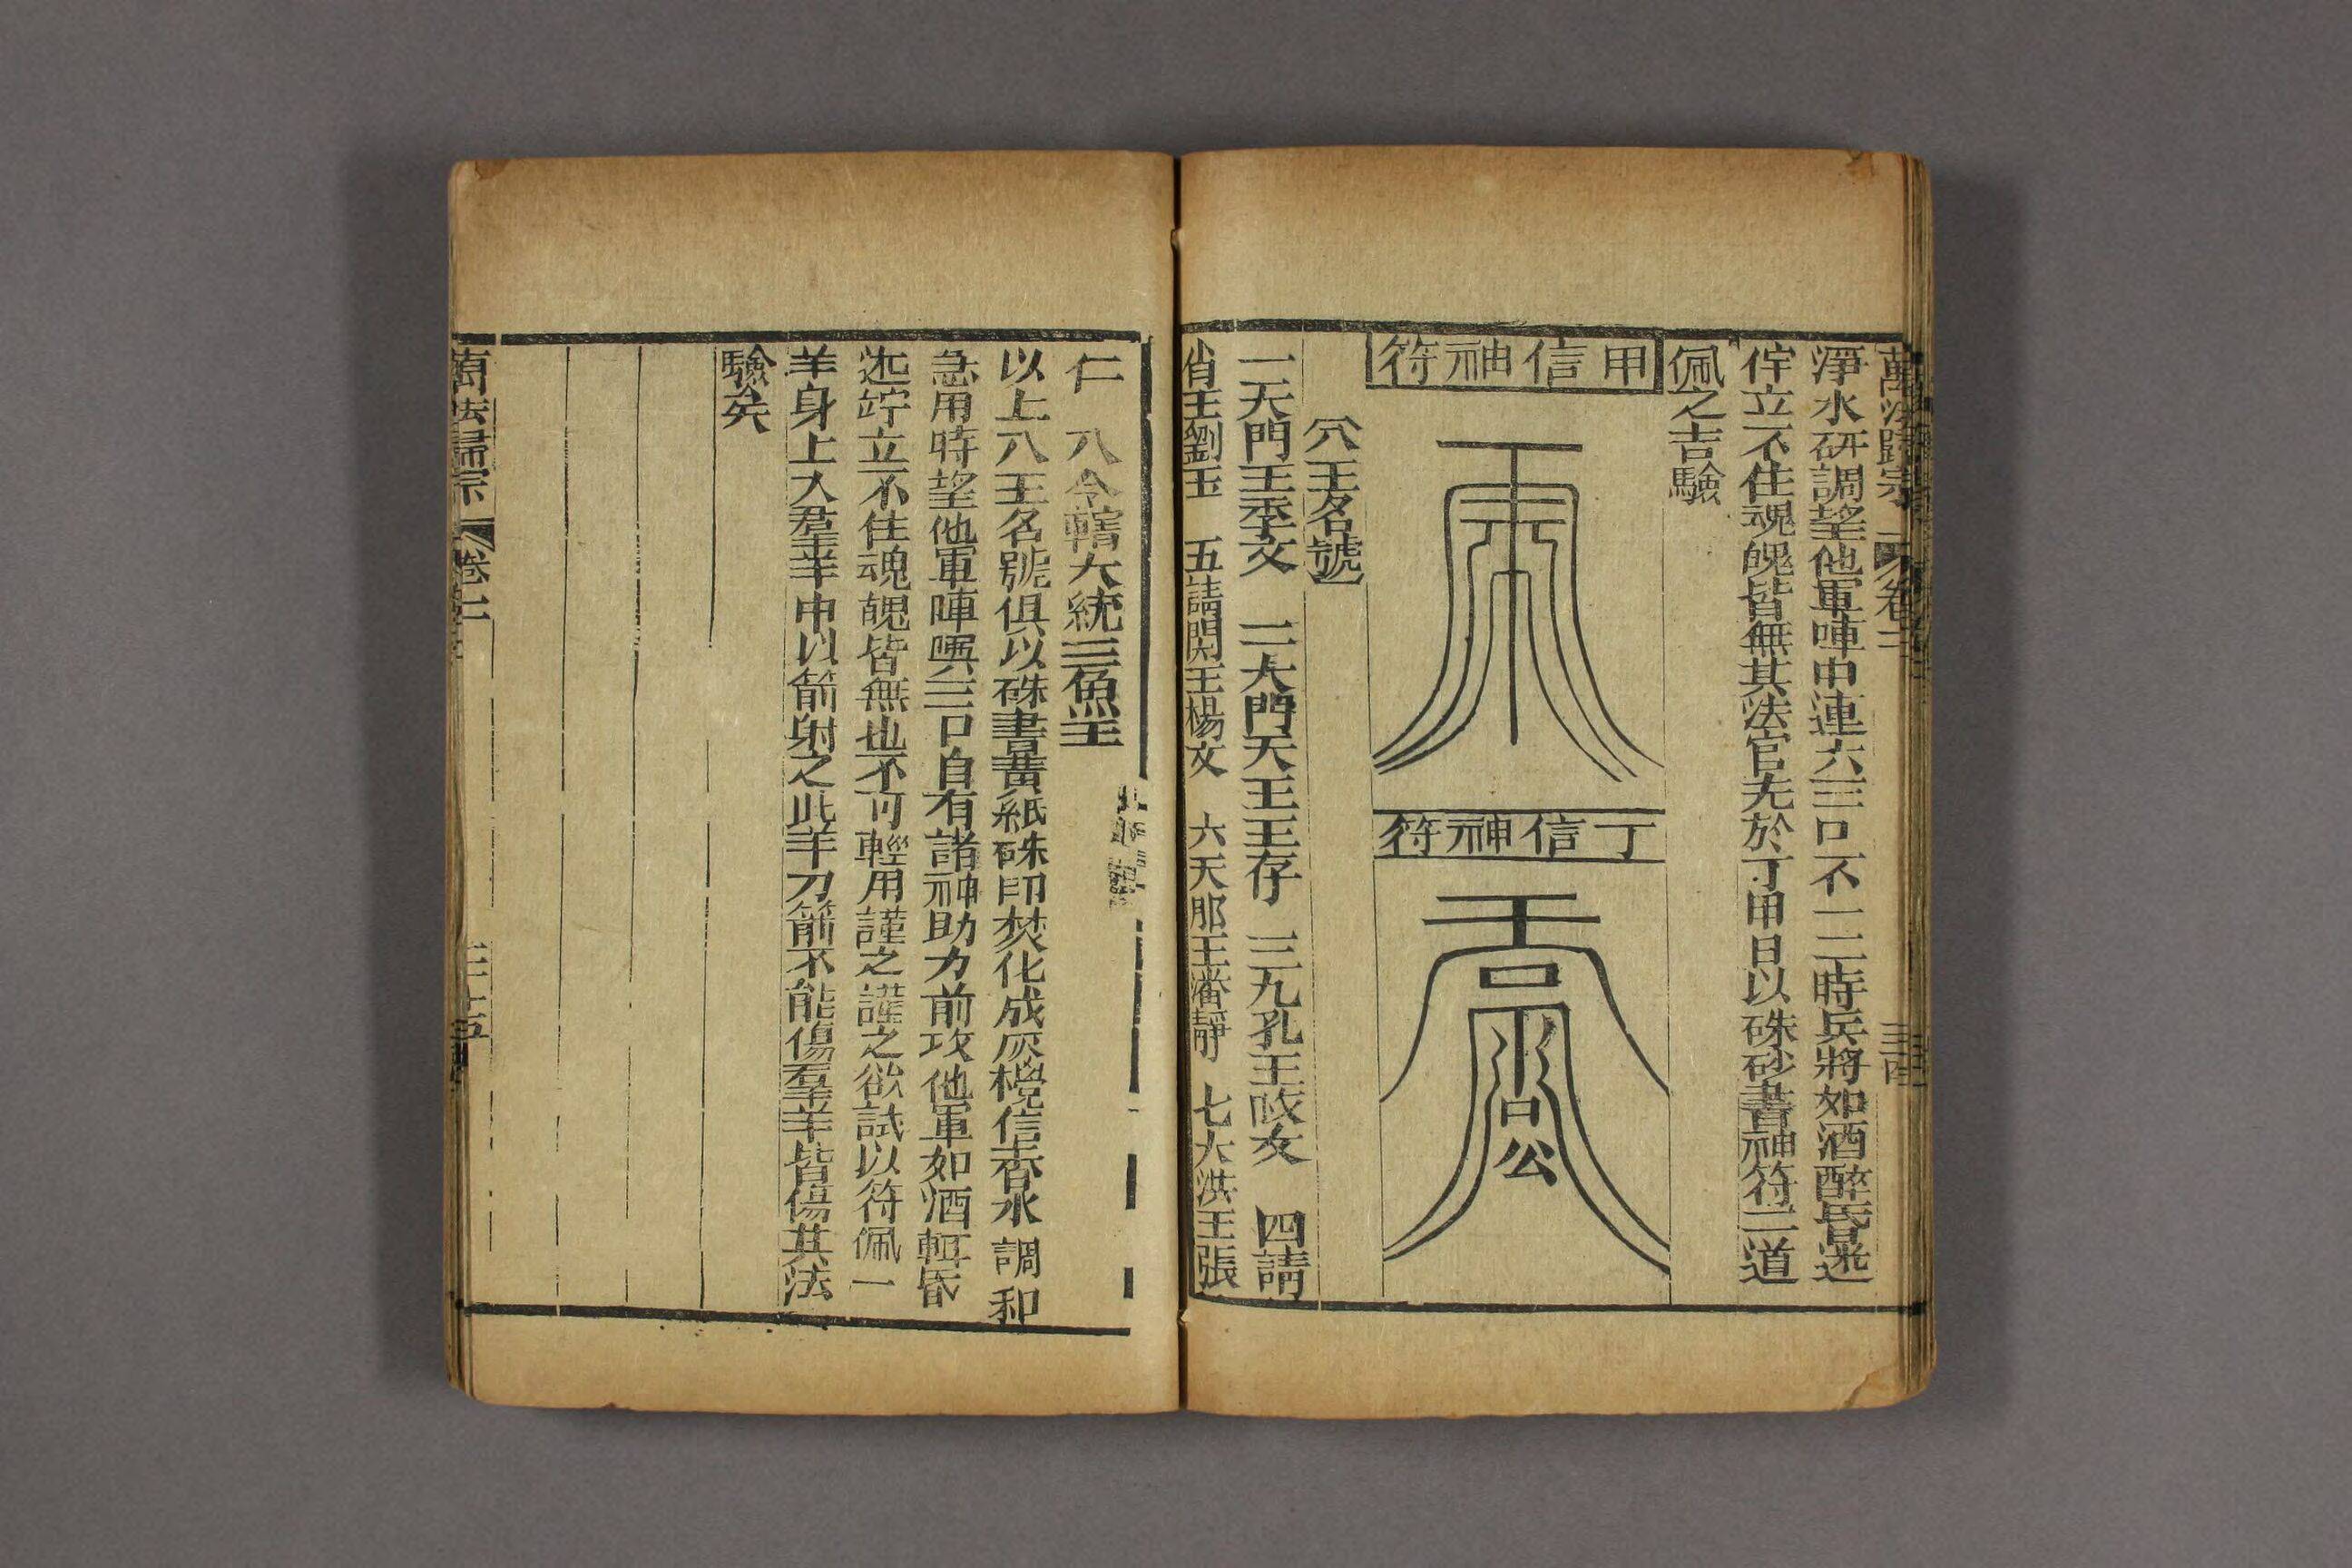 萬法歸宗 卷二 二十四
淨水研調望他軍陣中連六三口不一二時兵將如酒醉昏迷
佇立不住魂魄皆無其法官先於丁甲日以硃砂書神符二道
佩之吉驗
甲信神符
丁信神符
穴王名號
一天門王季文 二大門天王王存 三九孔王攱文 四請
肖王劉玉 五請閞王楊文 六天那王潘靜 七大洪王張
仁 八令轄大統三魚王
以上八王名號俱以硃書黃紙硃印焚化成灰欖信香水調和
急用時望他軍陣噀三口自有諸神助力前攻他軍如酒輕昏
迯竚立不住魂魄皆無也不可輕用謹之謹之欲試以符佩一
羊身上入羣羊中以箭射之此羊刀箭不能傷羣羊皆傷其法
驗矣
萬法歸宗 卷二 二十五